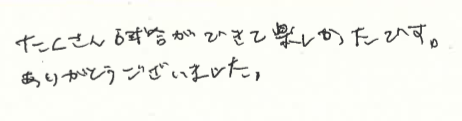 たくさん試合ができて楽しかったです。
ありがとうございました。